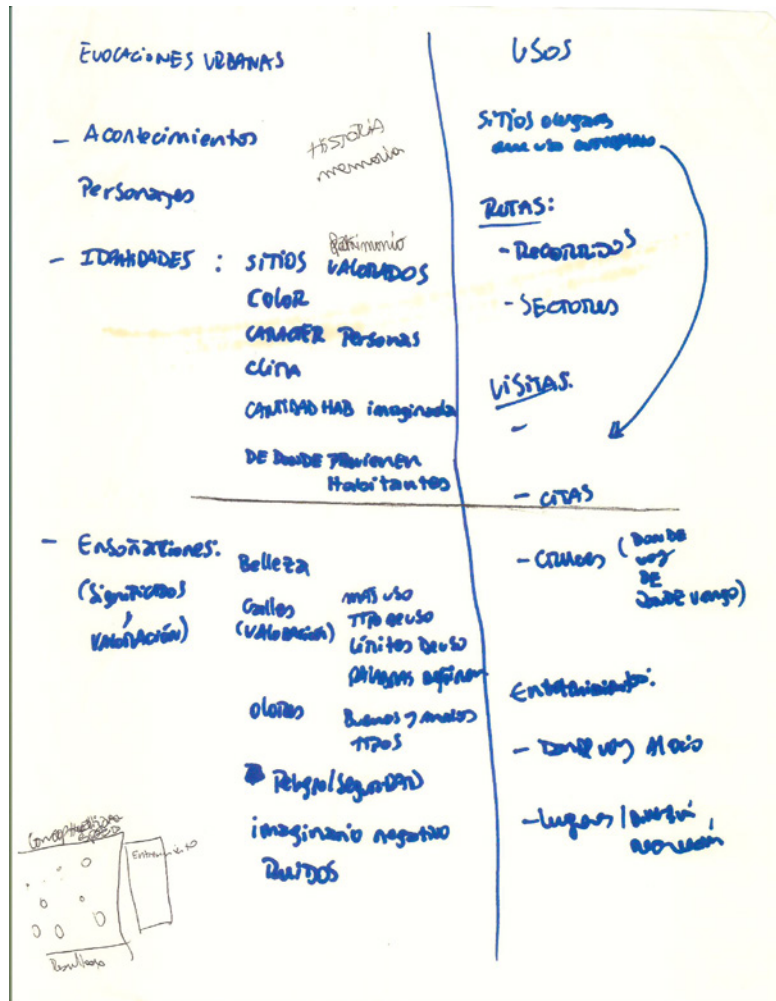 EVOCACIONES URBANAS
- Acontecimientos
HISTORIA
memoria
Personajes
Patrimonio
- IDENTIDADES : SITIOS VALORADOS
COLOR
CARACTER Personas
CLIMA
CANTIDAD HAB imaginada
DE DONDE PROVIENEN
Habitantes
- Ensoñaciones:
(Significados
y
VALORACIÓN)
Belleza
Calles
(VALORACIÓN)
MAS USO
TIPO DE USO
LIMITES DE USO
PALABRAS
olores
Buenos y malos
TIPOS
Peligro/SeguriDAD
imaginario negativo
RUIDOS
Resultado
USOS
SITIOS
que uso
RUTAS:
- RECORRIDOS
- SECTORES
VISITAS:
-
- CITAS
- CRUCES (DONDE
voy
DE
DONDE vengo)
Entretenimiento:
- DONDE voy Al ocio
- Lugares /